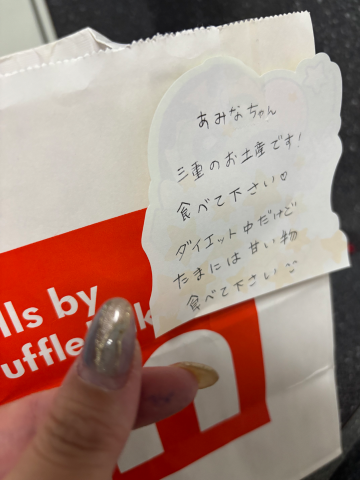 あみなちゃん
三重のお土産です!
食べて下さい♡
ダイエット中だけど
たまには甘い物
食べて下さい
lls by
uffle
k